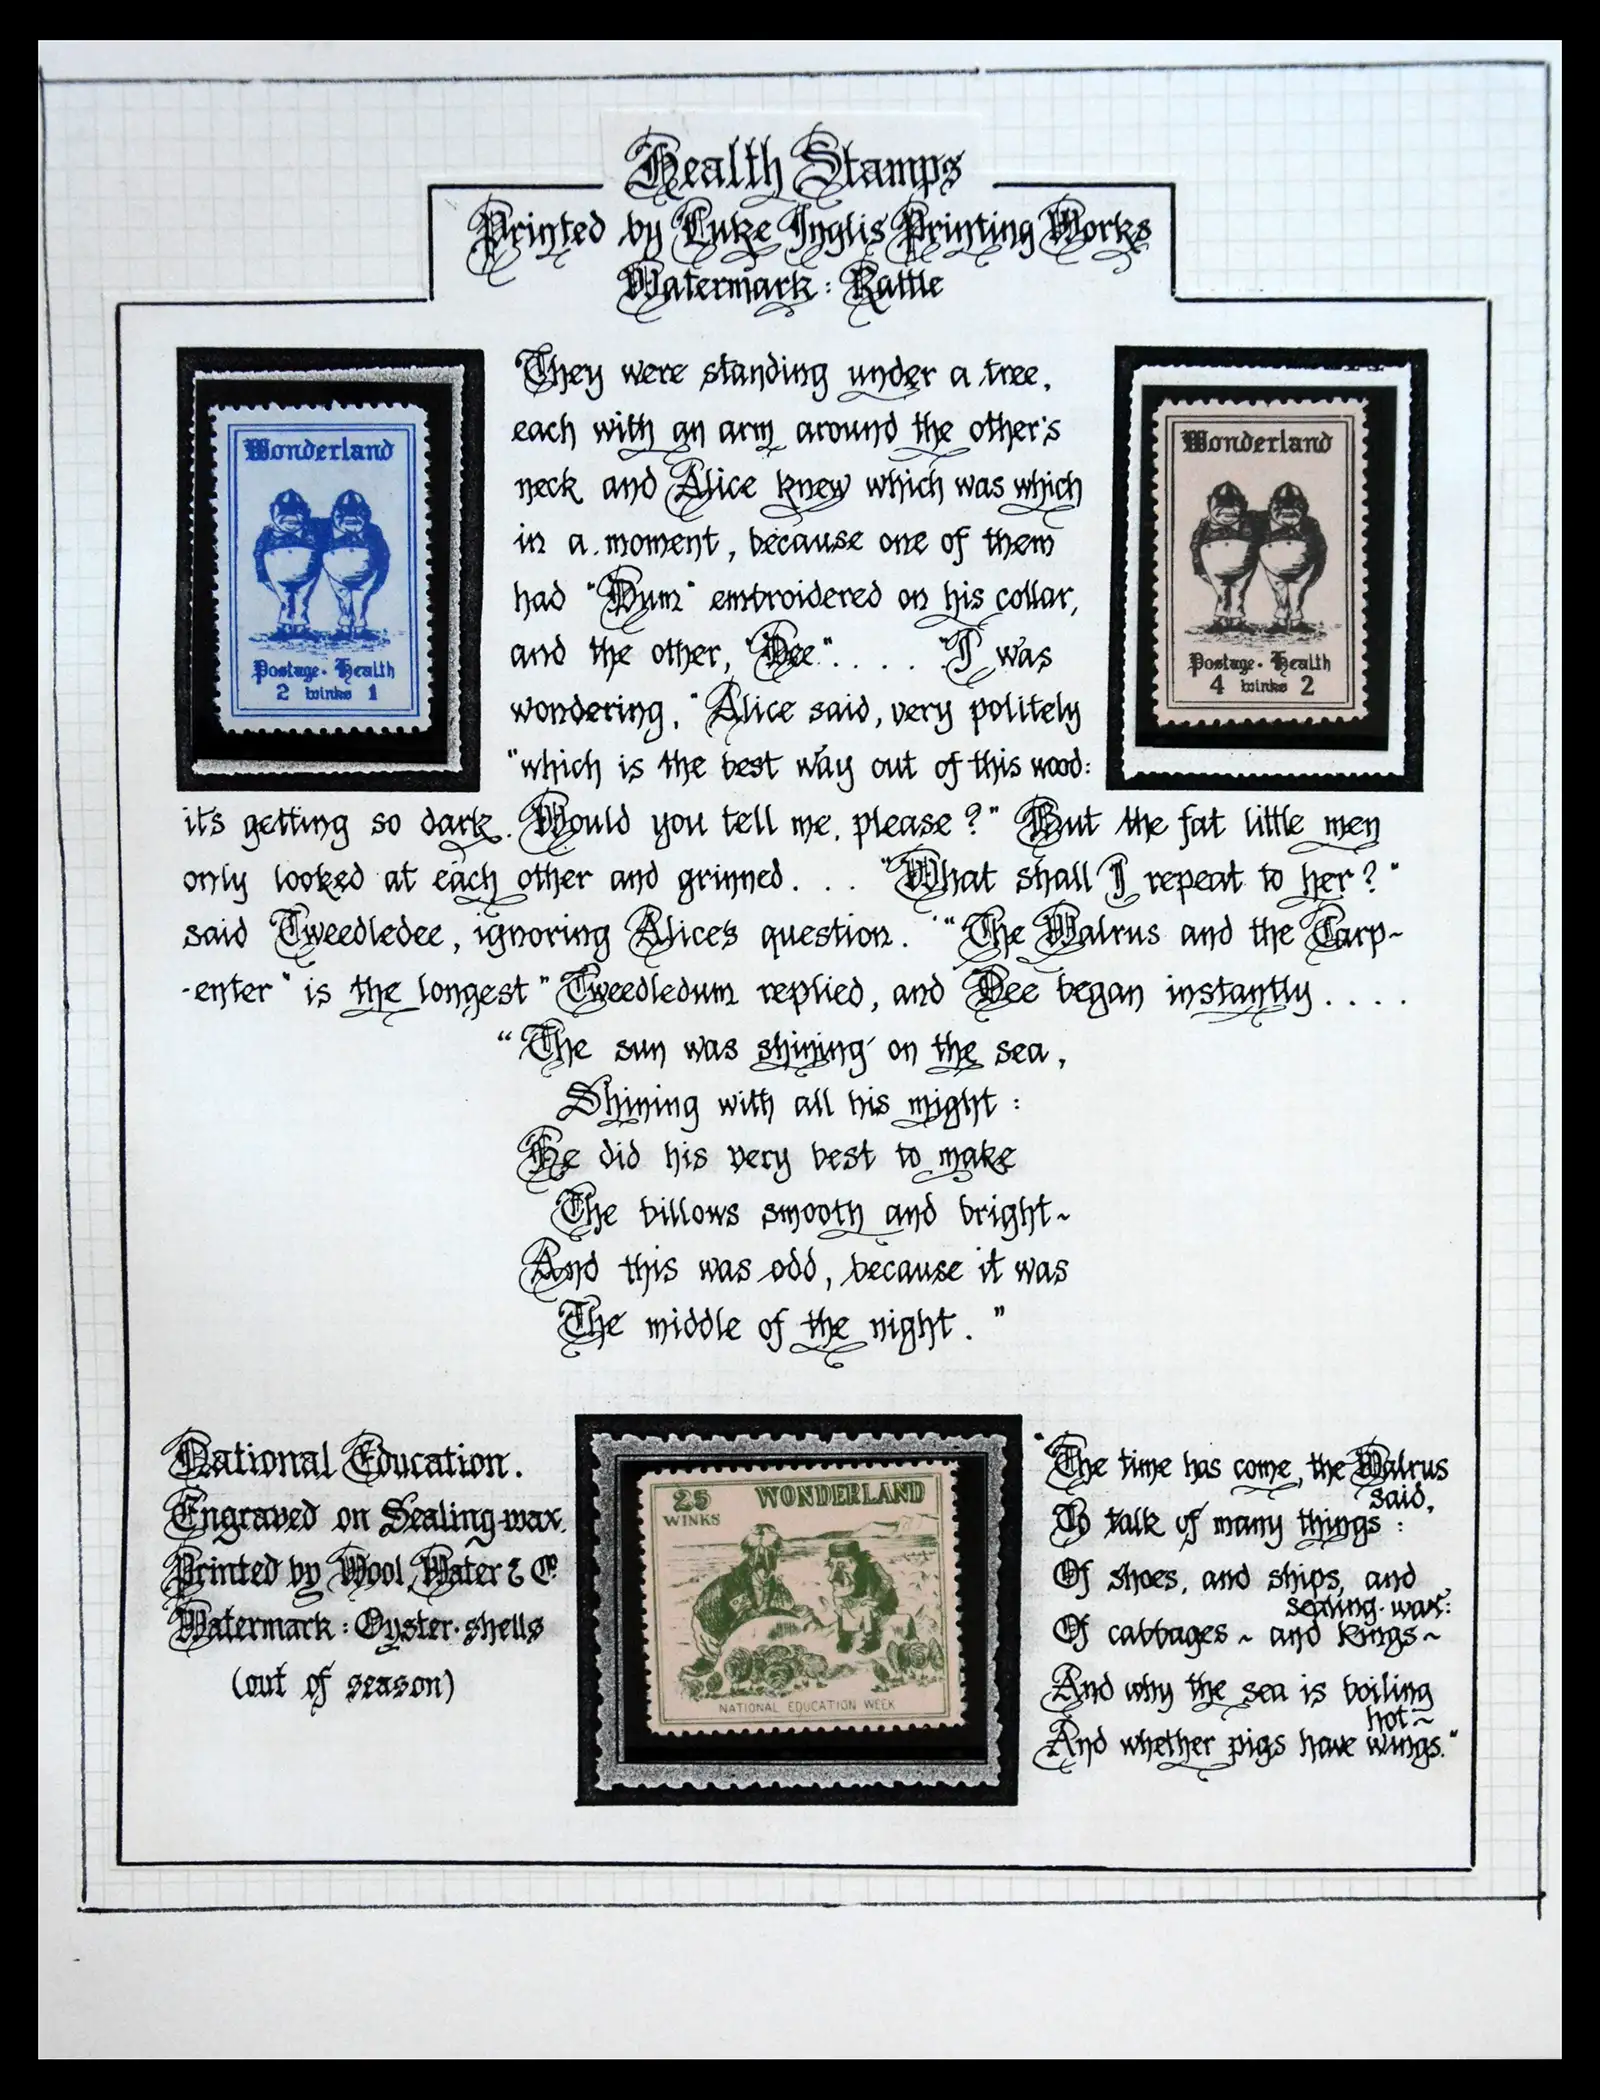 Health Stamps
Printed by Luke Inglis Printing Works
Watermark: Rattle
Wonderland
Postage. Health
2 winks 1
They were standing under a tree,
each with an arm around the other's
neck and Alice knew which was which
in a moment, because one of them
had "Dum" embroidered on his collar,
and the other, "Dee".... "I was
wondering," Alice said, very politely
"which is the best way out of this wood:
Wonderland
Postage. Health
4 winks 2
it's getting so dark. Would you tell me, please?" But the fat little men
only looked at each other and grinned... "What shall I repeat to her?"
said Tweedledee, ignoring Alice's question. '"The Walrus and the Carp-
-enter" is the longest" Tweedledum replied, and Dee began instantly....
"The sun was shining on the sea,
Shining with all his might:
He did his very best to make
The billows smooth and bright~
And this was odd, because it was
The middle of the night."
National Education.
Engraved on Sealing-wax.
Printed by Wool, Water & Co.
Watermark: Oyster-shells
(out of season)
25 WONDERLAND
WINKS
NATIONAL EDUCATION WEEK
"The time has come, the Walrus
said,
To talk of many things:
Of shoes, and ships, and
sealing-wax:
Of cabbages ~ and kings ~
And why the sea is boiling
hot ~
And whether pigs have wings."